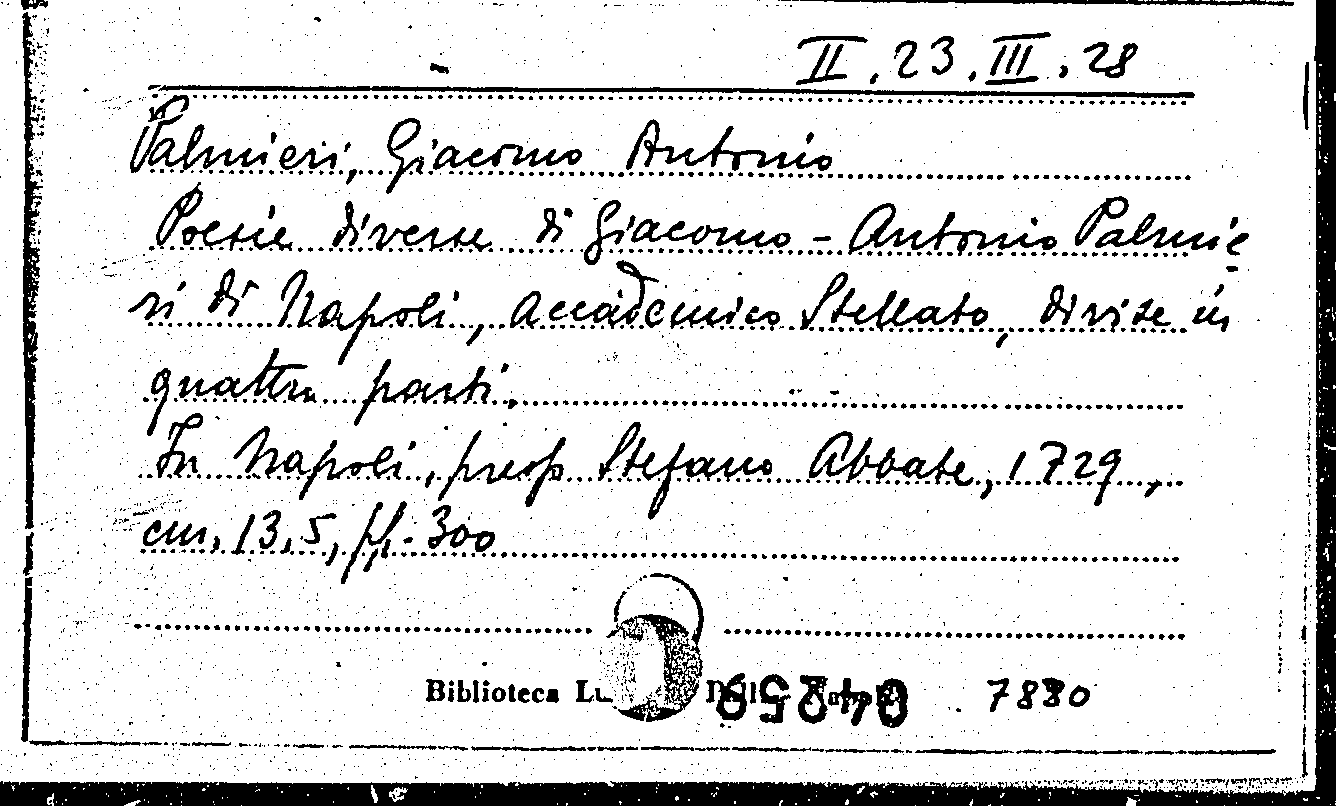 II.23.III.28
Palmieri, Giacomo Antonio
Poesie diverse di Giacomo - Antonio Palmie
ri di Napoli, accademico Stellato, divise in
quattro parti.
In Napoli, presso Stefano Abbate, 1729,
cm. 13,5, ff. 300
Biblioteca
04259